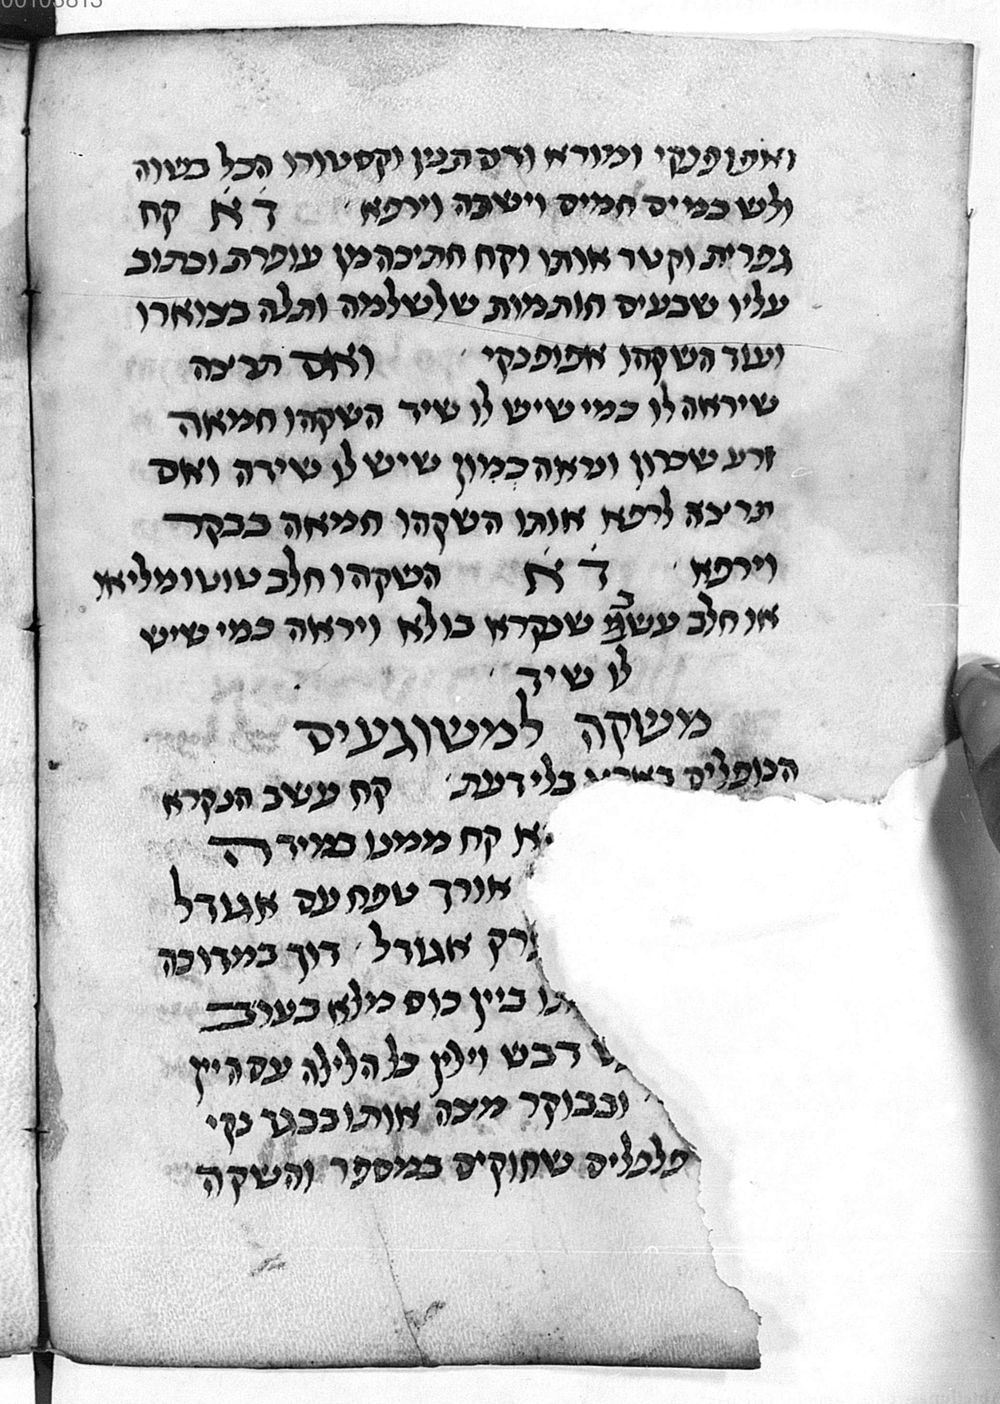 00103813
ואפופנקי ומורא ודם תנין וקסטורו הכל בשוה
ולש במיס חמיס וישבה וירפא ד א קח
גפרית וקטר אותו וקח חתיכה מן עופרת וכתוב
עליו שבעים חותמות שלשלמה ותלה בצוארו
ועוד השקהו אפופנקי ואם תרצה
שיראה לו כמי שיש לו שיד השקהו חמאה
זרע שכרון ומאה כמון שיש לו שידה ואם
תרצה לרפא אותו השקהו חמיאה בבקר
וירפא ד א השקהו חלב טוטומליאו
או חלב עשב שנקרא בולא ויראה כמי שיש
לו שיד
משקה למשוגעים
הנופלים בארץ בלי דעת קח עשב הנקרא
קח ממנו במידה
אורך טפח עם אגודל
פרק אגודל דוך במדוכה
ביין כוס מלא בערב
דבש וילין כל הלילה עם היין
ובבוקר מצה אותו בבגד נקי
פלפלים שחוקים במספר והשקה